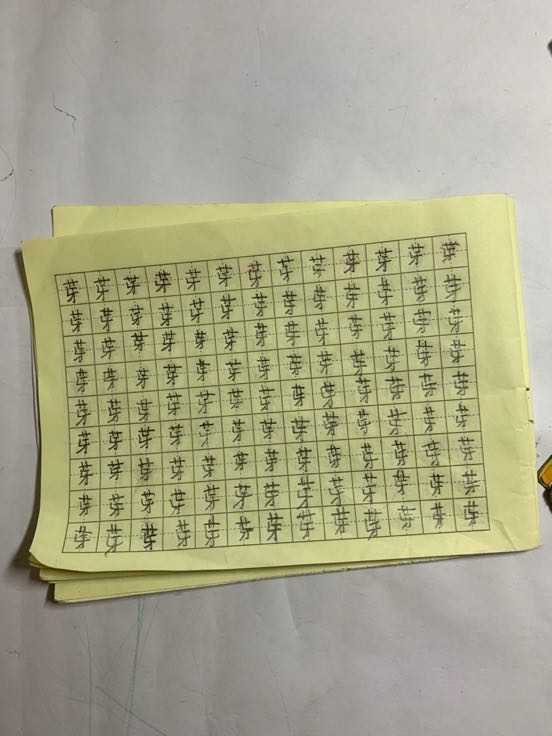 芽芽芽芽芽芽芽芽芽芽芽芽芽
芽芽芽芽芽芽芽芽芽芽芽芽芽
芽芽芽芽芽芽芽芽芽芽芽芽芽
芽芽芽芽芽芽芽芽芽芽芽芽芽
芽芽芽芽芽芽芽芽芽芽芽芽芽
芽芽芽芽芽芽芽芽芽芽芽芽芽
芽芽芽芽芽芽芽芽芽芽芽芽芽
芽芽芽芽芽芽芽芽芽芽芽芽芽
芽芽芽芽芽芽芽芽芽芽芽芽芽